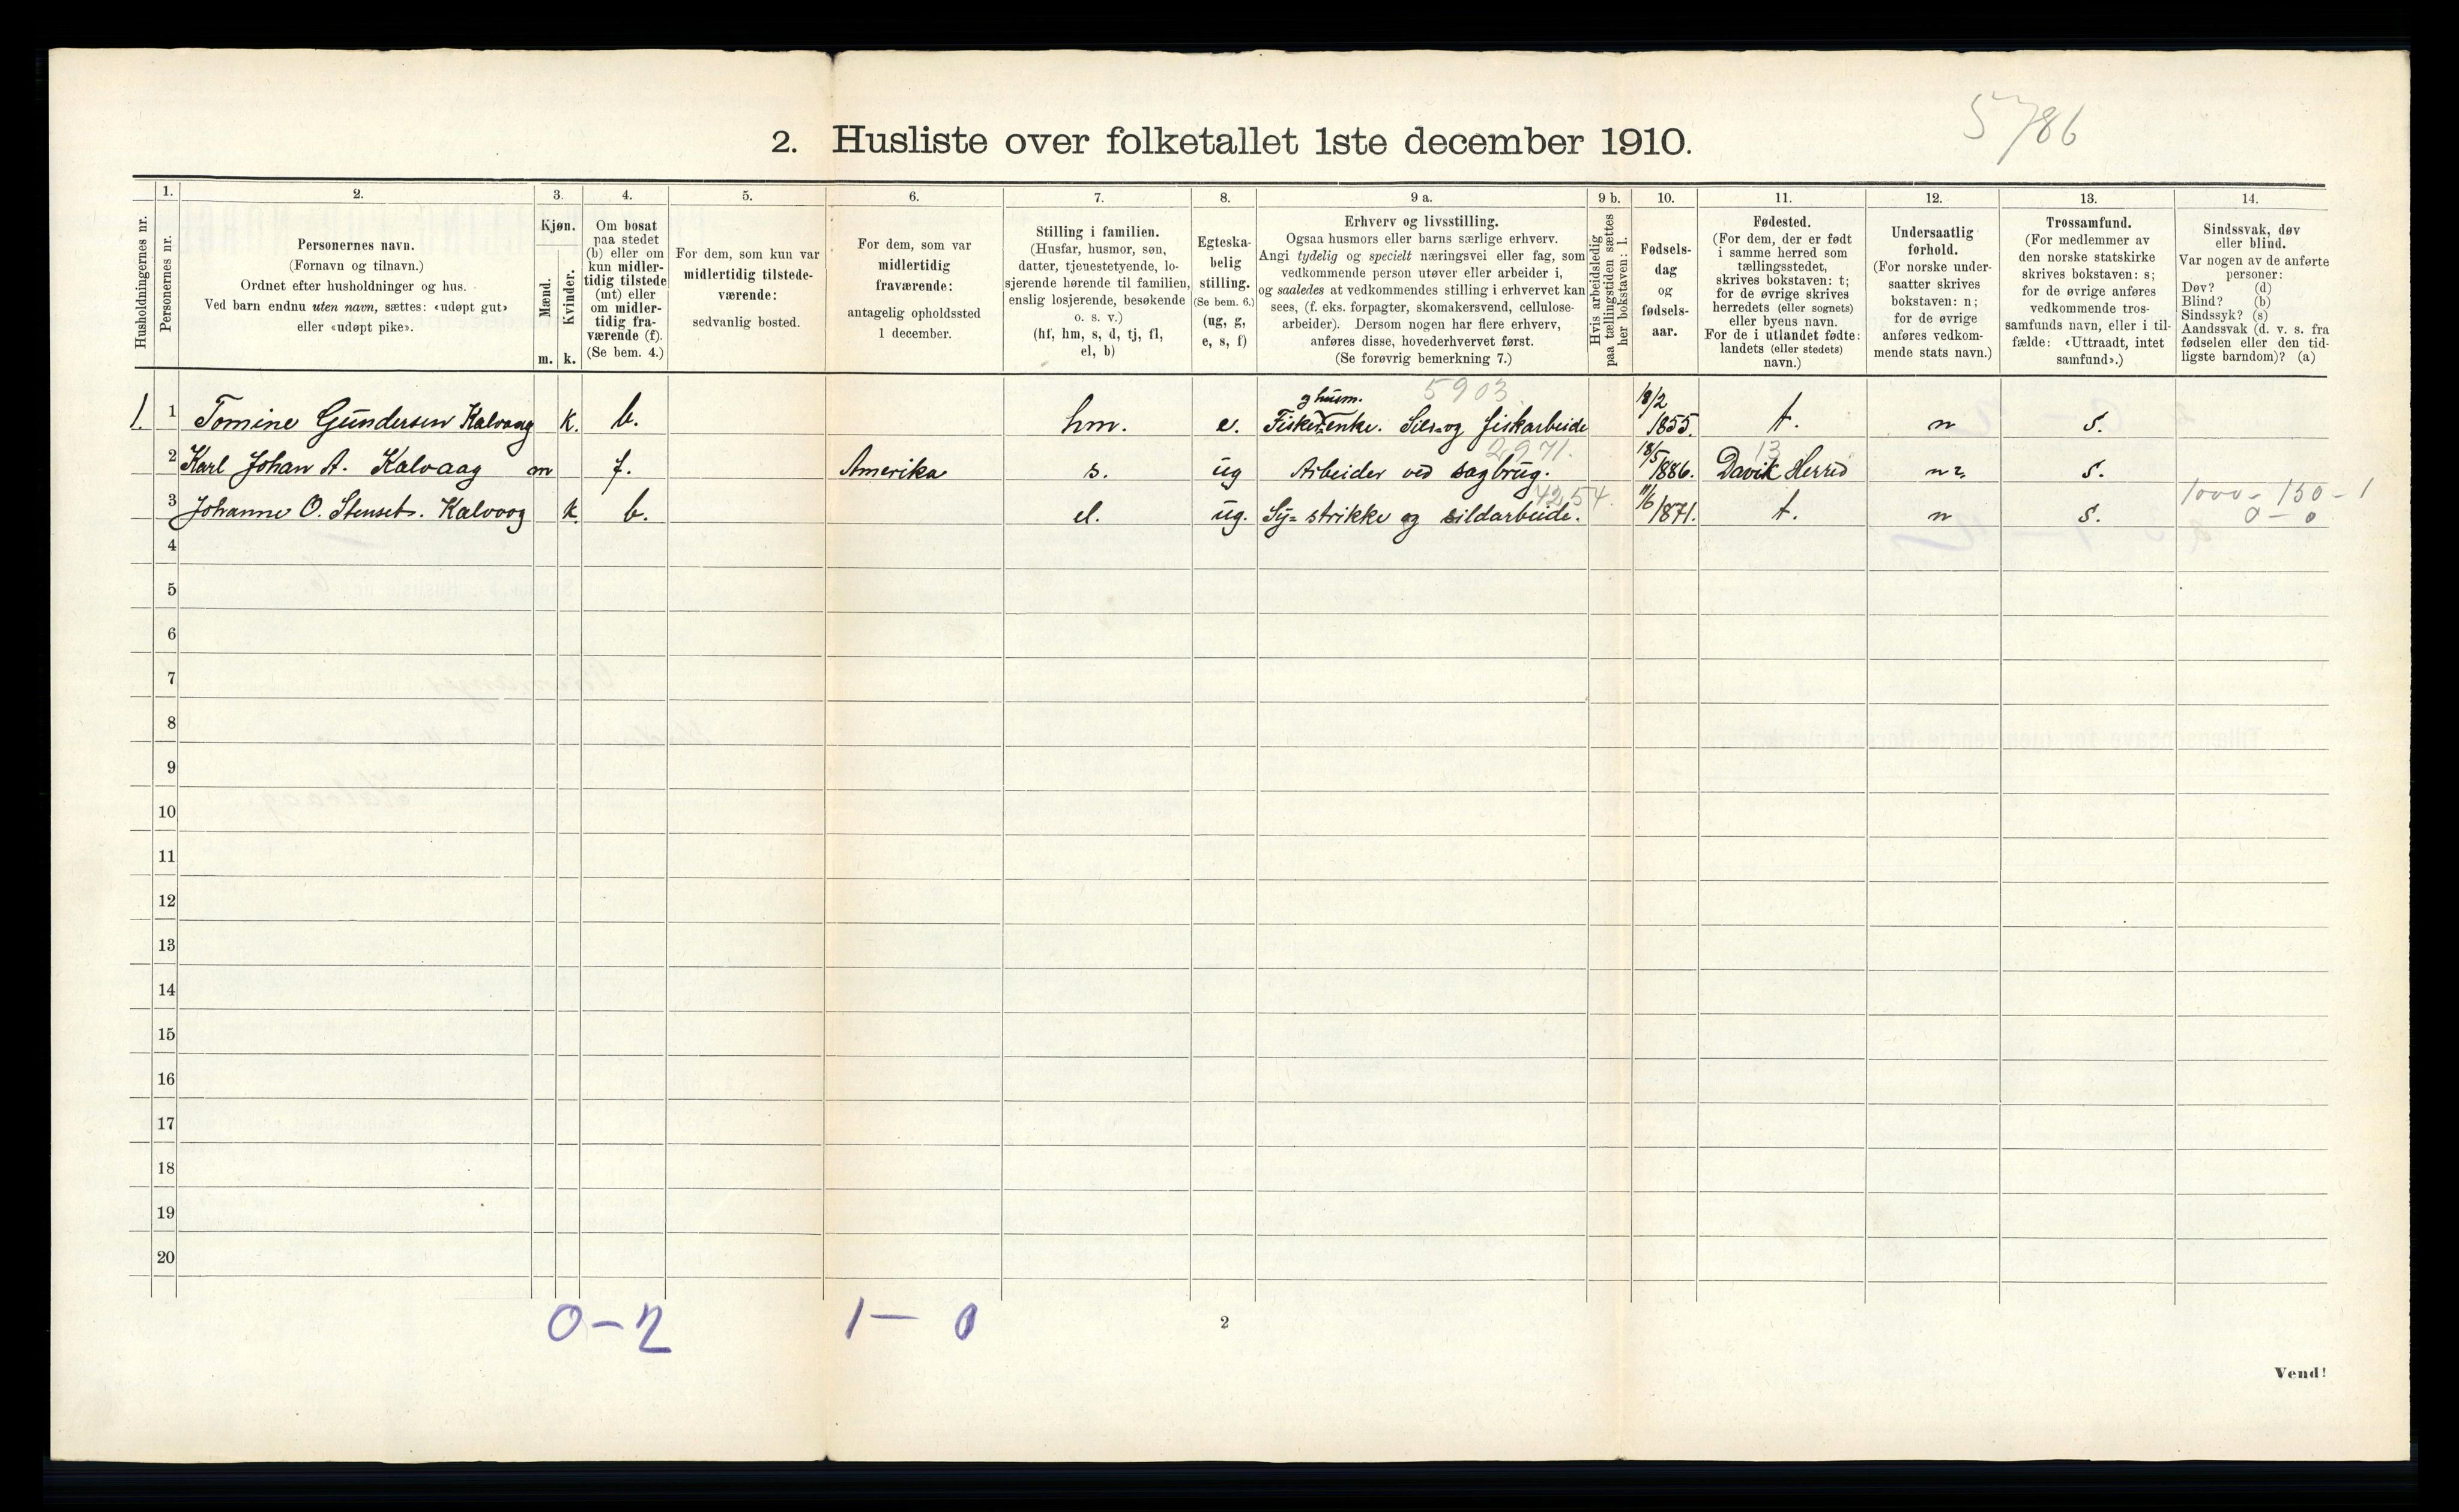 5786
2. Husliste over folketallet 1ste december 1910.
Husholdningernes nr.
1.
Personernes nr.
2.
Personernes navn.
(Fornavn og tilnavn.)
Ordnet efter husholdninger og hus.
Ved barn endnu uten navn, sættes: «udøpt gut»
eller «udøpt pike».
3.
Kjøn.
Mænd.
Kvinder.
m. k.
4.
Om bosat
paa stedet
(b) eller om
kun midler-
tidig tilstede
(mt) eller
om midler-
tidig fra-
værende (f).
(Se bem. 4.)
5.
For dem, som kun var
midlertidig tilstede-
værende:
sedvanlig bosted.
6.
For dem, som var
midlertidig
fraværende:
antagelig opholdssted
1 december.
7.
Stilling i familien.
(Husfar, husmor, søn,
datter, tjenestetyende, lo-
sjerende hørende til familien,
enslig losjerende, besøkende
o. s. v.)
(hf, hm, s, d, tj, fl,
el, b)
8.
Egteska-
belig
stilling.
(Se bem. 6.)
(ug, g,
e, s, f)
9 a.
Erhverv og livsstilling.
Ogsaa husmors eller barns særlige erhverv.
Angi tydelig og specielt næringsvei eller fag, som
vedkommende person utøver eller arbeider i,
og saaledes at vedkommendes stilling i erhvervet kan
sees, (f. eks. forpagter, skomakersvend, cellulose-
arbeider). Dersom nogen har flere erhverv,
anføres disse, hovederhvervet først.
(Se forøvrig bemerkning 7.)
9 b.
Hvis arbeidsledig
paa tællingstiden sættes
her bokstaven: l.
10.
Fødsels-
dag
og
fødsels-
aar.
11.
Fødested.
(For dem, der er født
i samme herred som
tællingsstedet,
skrives bokstaven: t;
for de øvrige skrives
herredets (eller sognets)
eller byens navn.
For de i utlandet fødte:
landets (eller stedets)
navn.)
12.
Undersaatlig
forhold.
(For norske under-
saatter skrives
bokstaven: n;
for de øvrige
anføres vedkom-
mende stats navn.)
13.
Trossamfund.
(For medlemmer av
den norske statskirke
skrives bokstaven: s;
for de øvrige anføres
vedkommende tros-
samfunds navn, eller i til-
fælde: «Uttraadt, intet
samfund».)
14.
Sindssvak, døv
eller blind.
Var nogen av de anførte
personer:
Døv? (d)
Blind? (b)
Sindssyk? (s)
Aandssvak (d. v. s. fra
fødselen eller den tid-
ligste barndom)? (a)
5903
1. 1 Tomine Gundersen Kalvaag k. b. hm. e. Fiskerenke. Sild og fiskarbeide 18/2 1855. t. n s.
2971. 13
2 Karl Johan A. Kalvaag m f. Amerika s. ug Arbeider ved sagbrug. 18/5 1886. Davik Herred n s.
4254. 1000 - 150 - 1
3 Johanne O. Stenset. Kalvaag k b. el. ug. Sy= strikke og sildarbeide. 11/6 1871. t. n s. 0 - 0
4
5
6
7
8
9
10
11
12
13
14
15
16
17
18
19
20
0 - 2 1 - 0
2
Vend!